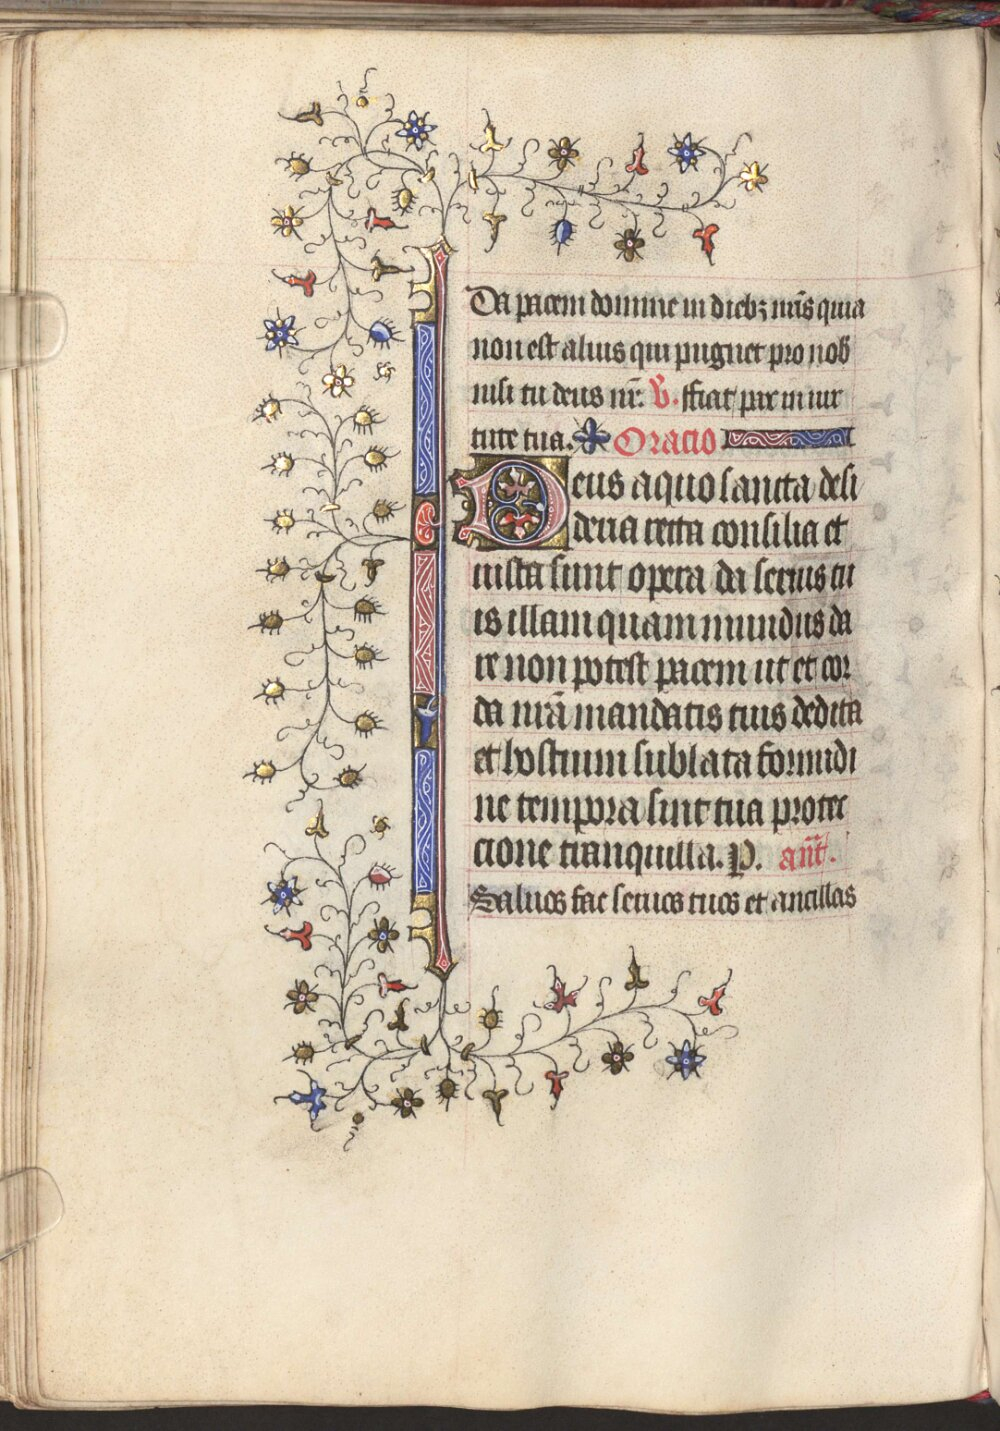 Da pacem domine in dieb⁊ nr̄is quia
non est alius qui pugnet pro nob̄
nisi tu deus nr̄. ℣. ffiat pax in uir
tute tua. Oracio
Deus a quo sancta desi
deria recta consilia et
iusta sunt opera da seruis tu
is illam quam mundus da
re non potest pacem ut et cor
da nr̄a mandatis tuis dedita
et hostium sublata formidi
ne tempora sint tua protec
cione tranquilla. P. ant̄.
Saluos fac seruos tuos et ancillas